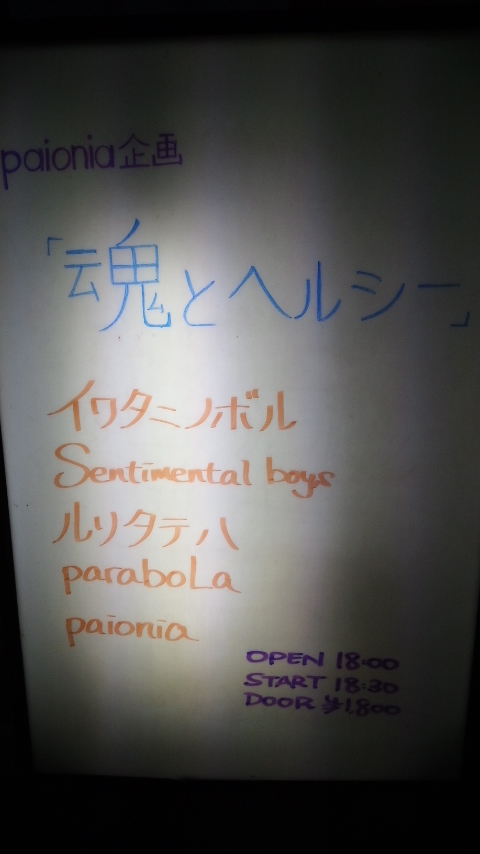 paionia企画
「魂とヘルシー」
イワタニノボル
Sentimental boys
ルリタテハ
paraboLa
paionia
OPEN 18:00
START 18:30
DOOR ¥1,800